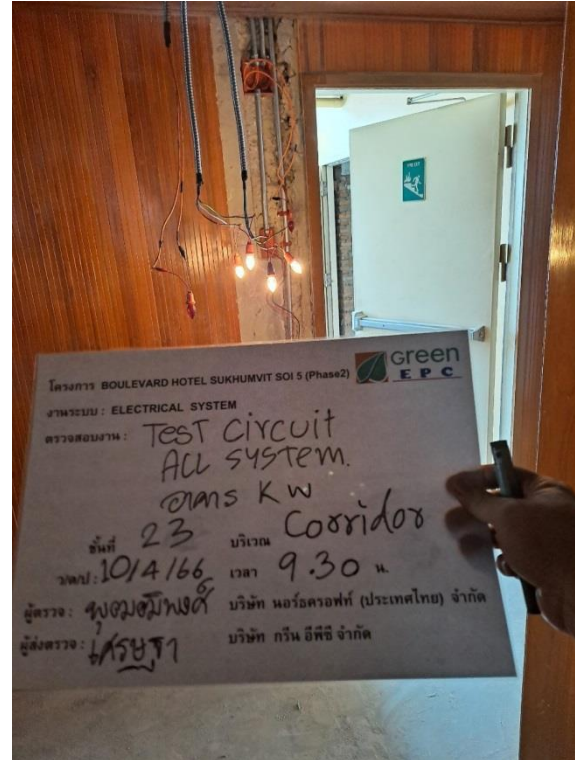 FIRE EXIT
โครงการ BOULEVARD HOTEL SUKHUMVIT SOI 5 (Phase2)
Green
EPC
งานระบบ : ELECTRICAL SYSTEM
ตรวจสอบงาน : TEST CIRCUIT
ALL SYSTEM.
อาคาร KW
ชั้นที่ 23 บริเวณ Corridor
ว/ด/ป : 10/4/66 เวลา 9.30 น.
ผู้ตรวจ : บริษัท นอร์ธครอฟท์ (ประเทศไทย) จำกัด
ผู้ส่งตรวจ : เศรษฐา บริษัท กรีน อีพีซี จำกัด